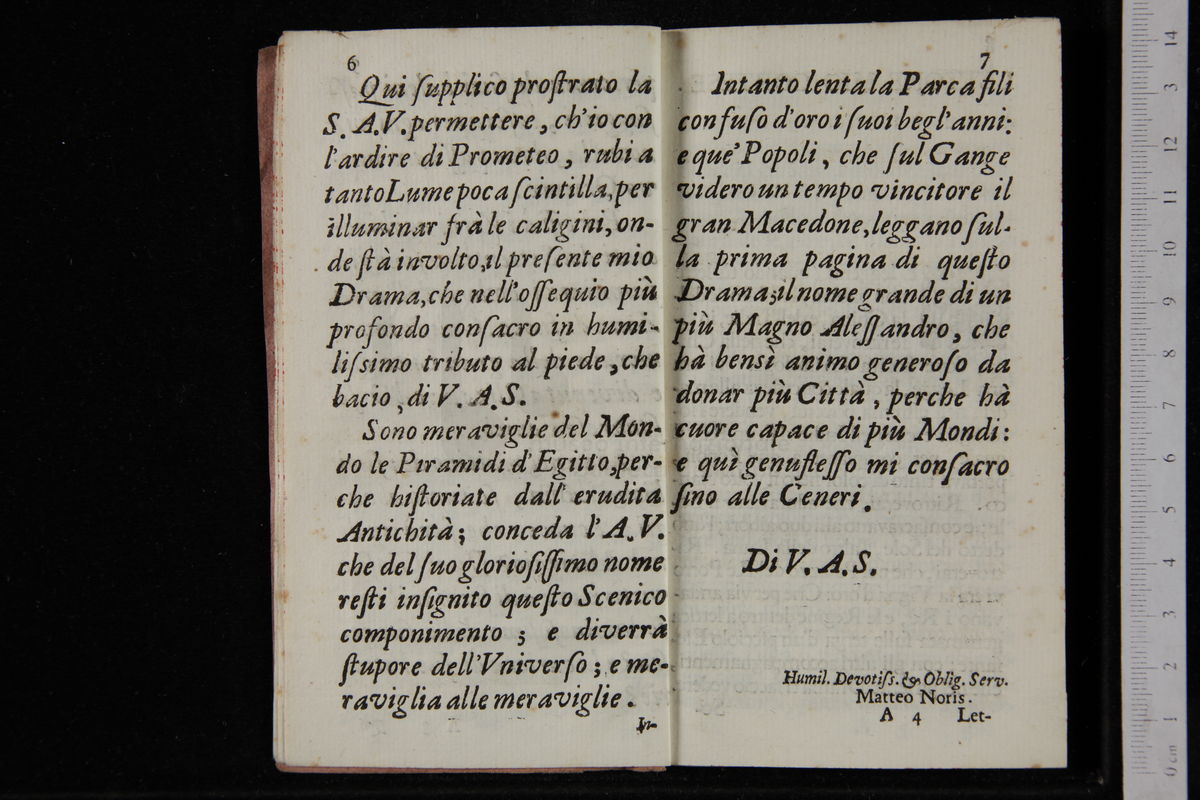 6
Qui ſupplico proſtrato la
S. A. V. permettere, ch'io con
l'ardire di Prometeo, rubi a
tanto Lume poca ſcintilla, per
illuminar frà le caligini, on-
de ſtà involto, il preſente mio
Drama, che nell'oſſequio più
profondo conſacro in humi-
liſsimo tributo al piede, che
bacio, di V. A. S.
Sono meraviglie del Mon-
do le Piramidi d'Egitto, per-
che hiſtoriate dall' erudita
Antichità; conceda l'A. V.
che del ſuo glorioſiſſimo nome
reſti inſignito queſto Scenico
componimento; e diverrà
ſtupore dell'Vniverſo; e me-
raviglia alle meraviglie.
In-
7
Intanto lenta la Parca fili
confuſo d'oro i ſuoi begl'anni:
e que' Popoli, che ſul Gange
videro un tempo vincitore il
gran Macedone, leggano ſul-
la prima pagina di queſto
Drama, il nome grande di un
più Magno Aleſſandro, che
hà bensì animo generoſo da
donar più Città, perche hà
cuore capace di più Mondi:
e quì genufleſſo mi conſacro
ſino alle Ceneri.
Di V. A. S.
Humil. Devotiſs. & Oblig. Serv.
Matteo Noris.
A 4 Let-
0 cm 1 2 3 4 5 6 7 8 9 10 11 12 3 14